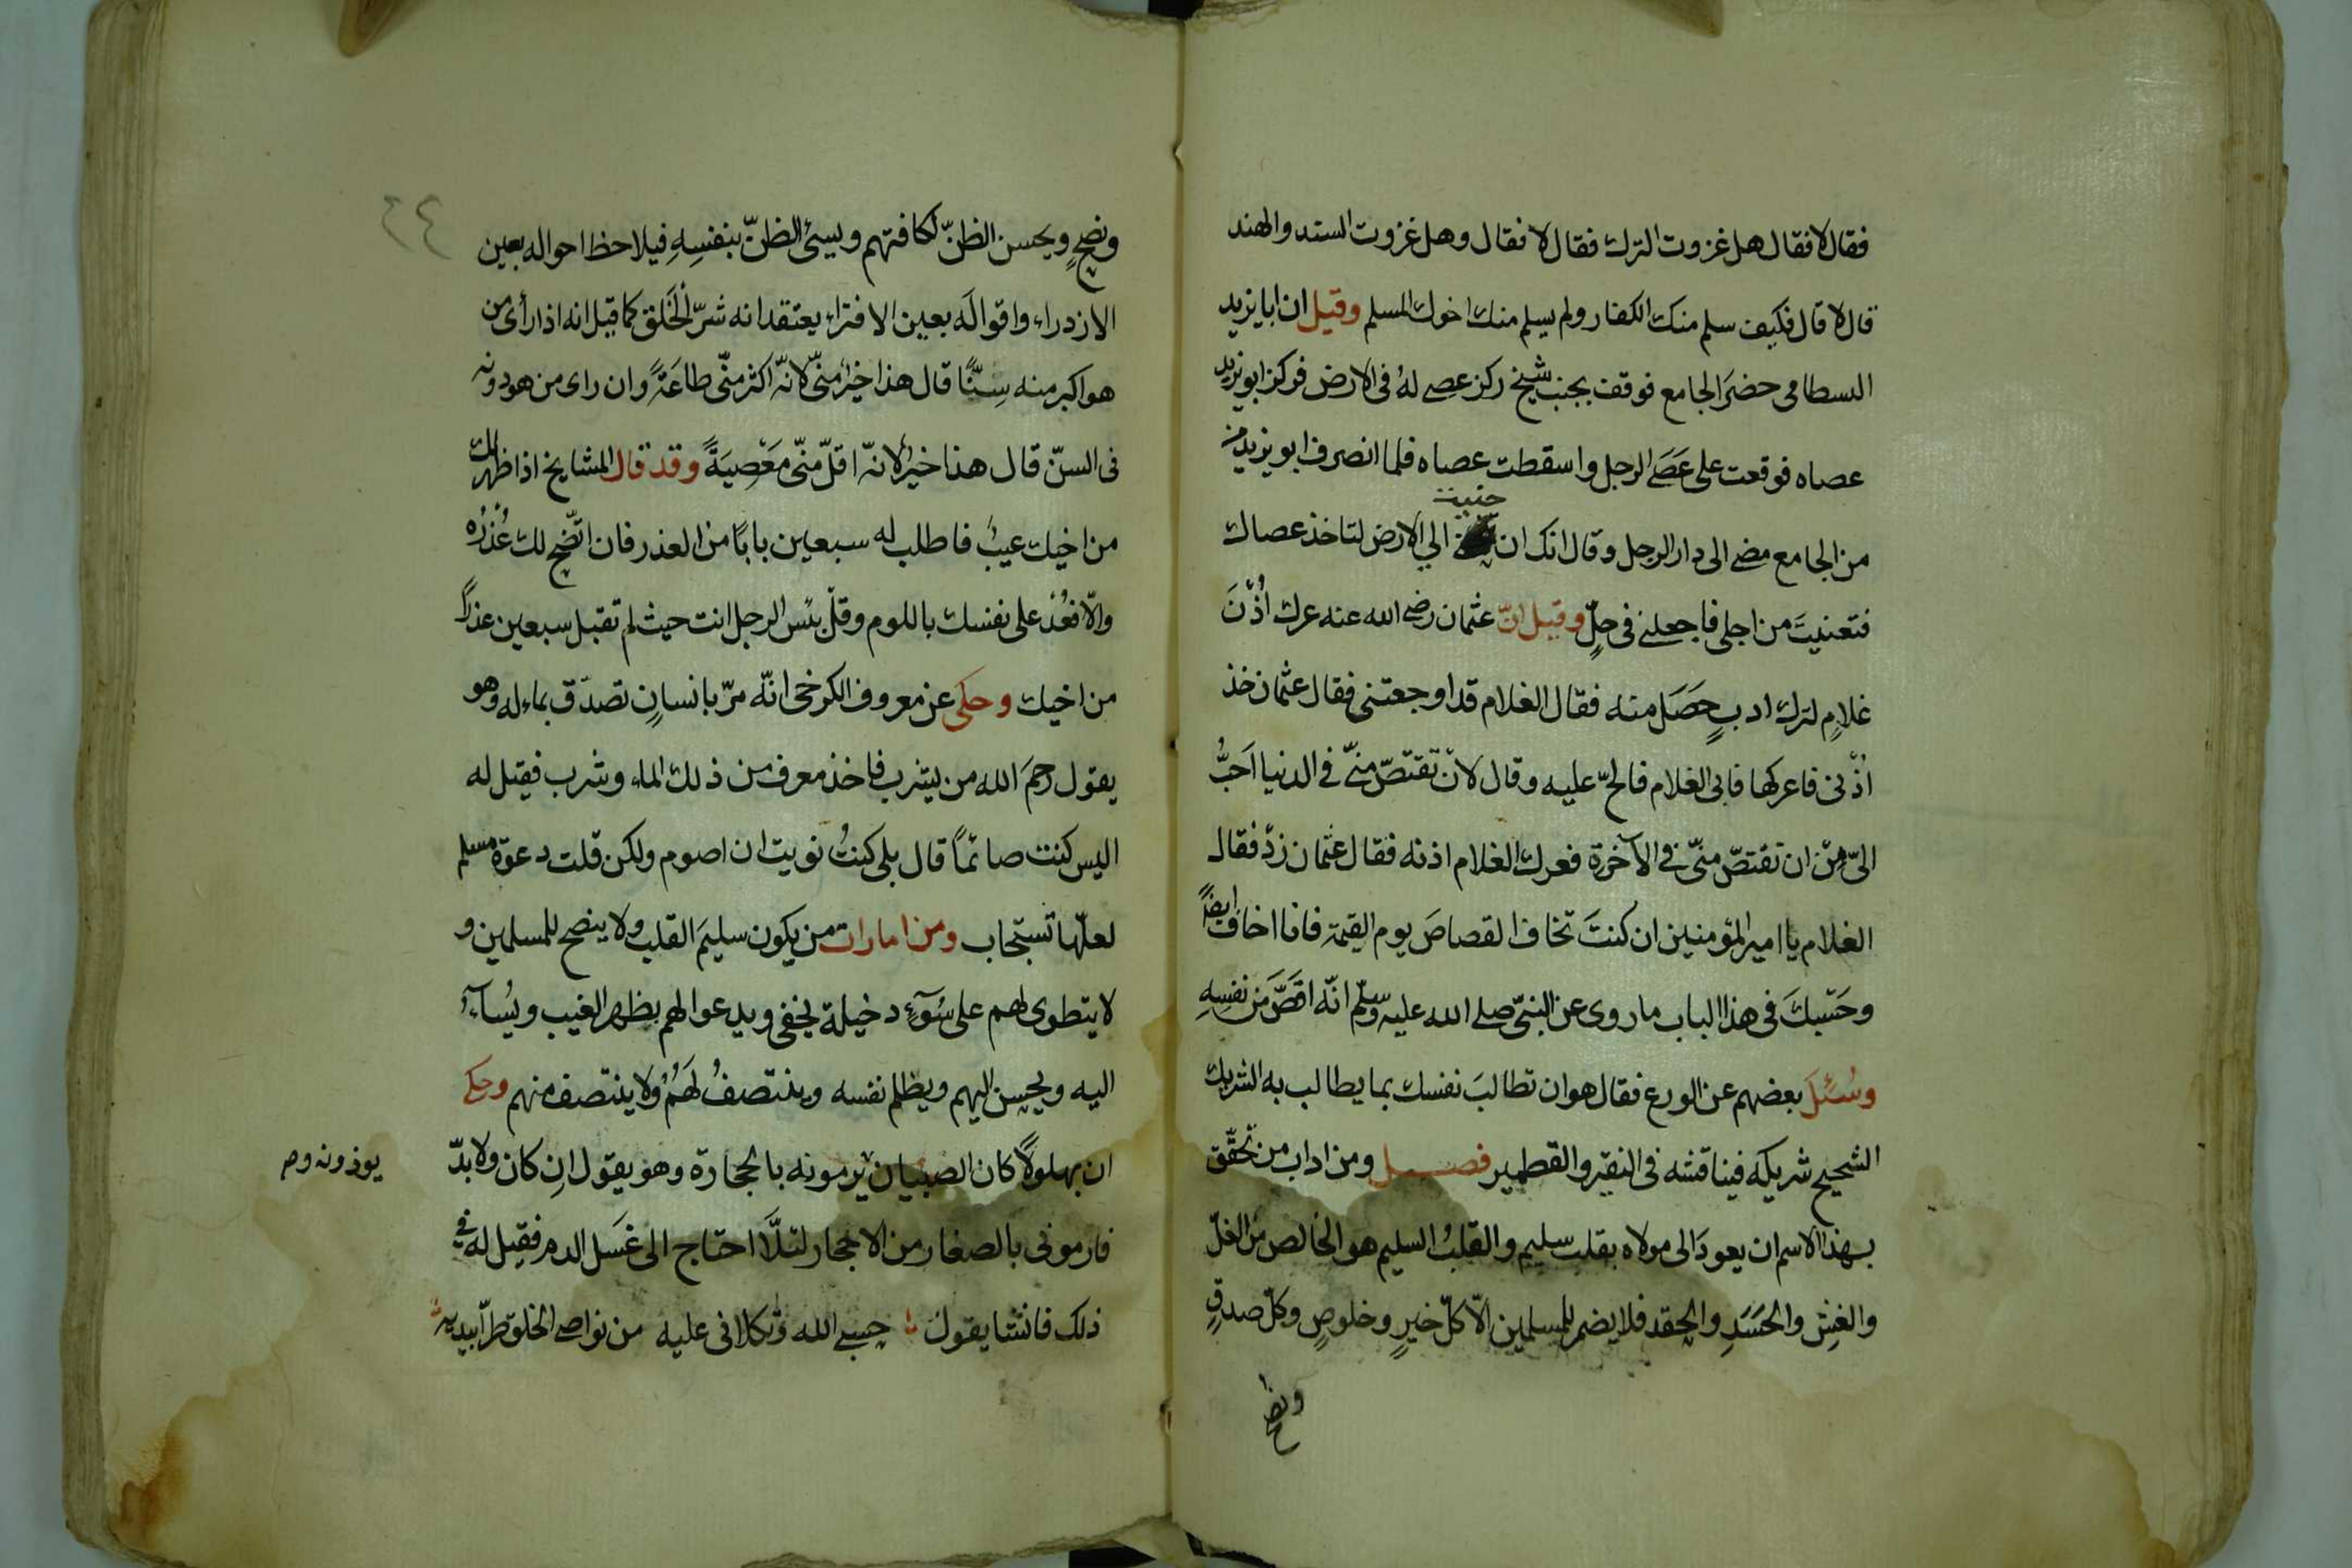 فقال لا فقال هل غزوت الترك فقال لا فقال وهل غزوت السند والهند
قال لا قال فكيف سلم منك الكفار ولم يسلم منك اخوك المسلم وقيل ان ابا يزيد
البسطامى حضَر الجامع فوقف بجنب شيخ ركز عصى لهُ فى الارض فركز ابو يزيد
عصاه فوقعت على عَصَى الرجل واسقطت عصاه فلما انصرف ابو يزيد من
حنيت
من الجامع مضى الى دار الرجل وقال انك الى الارض لتاخذ عصاك
فتعنيتَ من اجلى فاجعلنى فى حِلٍّ وقيل انّ عثمان رضى الله عنه عرك اُذْنَ
غلامٍ لترك ادبٍ حَصَل منه فقال الغلام قد اوجعتنى فقال عثمان خذ
اُذْنى فاعركها فابى الغلام فالحّ عليه وقال لانْ تقتصّ منّى فى الدنيا اَحَبُّ
الىّ مِنْ ان تقتصّ منّى فى الآخرة فعرك الغلام اذنه فقال عثمان زدْ فقال
الغلام يا امير المؤمنين ان كنتَ تخاف القصاصَ يوم القيمة فانا اخاف ايضًا
وحَسْبكَ فى هذا الباب ما روى عن النبىّ صلى الله عليه وسلّم انّه اقصَّ من نفسِهِ
وسُئِلَ بعضهم عن الورع فقال هو ان تطالبَ نفسك بما يطالب به الشريك
الشحيح شريكَه فيناقشه فى النقير والقطمير فصـل ومن اداب من تحقّق
بهذا الاسم ان يعودَ الى مولاه بقلب سليم والقلبُ السليم هو الخالص من الغلّ
والغِشّ والحَسَدِ والحِقد فلا يضمر للمسلمين الّا كلّ خيرٍ وخلوصٍ وكلّ صدقٍ
ونصح
٢٤
ونصحٍ ويحسن الظنّ لكافتهم ويسئ الظنّ بنفسِهِ فيلاحظ احواله بعين
الازدراء واقوالَه بعين الافتراء يعتقد انه شرّ الخَلق كما قيل انه اذا رأى من
هو اكبر منه سِنًّا قال هذا خيرٌ منّى لانّه اكثر منّى طاعَةً وان راى من هو دونه
فى السنّ قال هذا خيرٌ لانّه اقلّ منّى مَعْصِيَةً وقد قال المشايخ اذا ظهر لك
من اخيك عيبٌ فاطلب له سبعين بابًا من العذر فان اتّضح لك عُذْرُه
والّا فعُدْ على نفسك باللوم وقلْ بئس الرجل انت حيث لم تقبل سبعين عذرًا
من اخيك وحكى عن معروف الكرخى انّه مرّ بانسانٍ تصدّق بماء له وهو
يقول رحِمَ الله من يشرب فاخذ معرف من ذلك الماء وشرب فقيل له
اليس كنت صائمًا قال بلى كنتُ نويت ان اصوم ولكن قلت دعوة مسلم
لعلّها تستجاب ومن امارات من يكون سليمَ القلب ولا ينصح للمسلمين و
لا ينطوى لهم على سُوٓءٍ دخيلة يخفى ويدعوا لهم بظهر الغيب ويُسآءُ
اليه ويحسن اليهم ويظلم نفسه وينتصفُ لهُمْ ولا ينتصف منهم وحكى
ان بهلولًا كان الصبيان يرمونه بالحجارة وهو يقول اِن كان ولا بدّ
يوذونه و
فارمونى بالصغار من الاحجار لئلّا احتاج الى غَسَل الدم فقيل له فى
ذلك فانشا يقول حسبى الله وتكلانى عليه من نواصى الخلق طرًّا بيديه